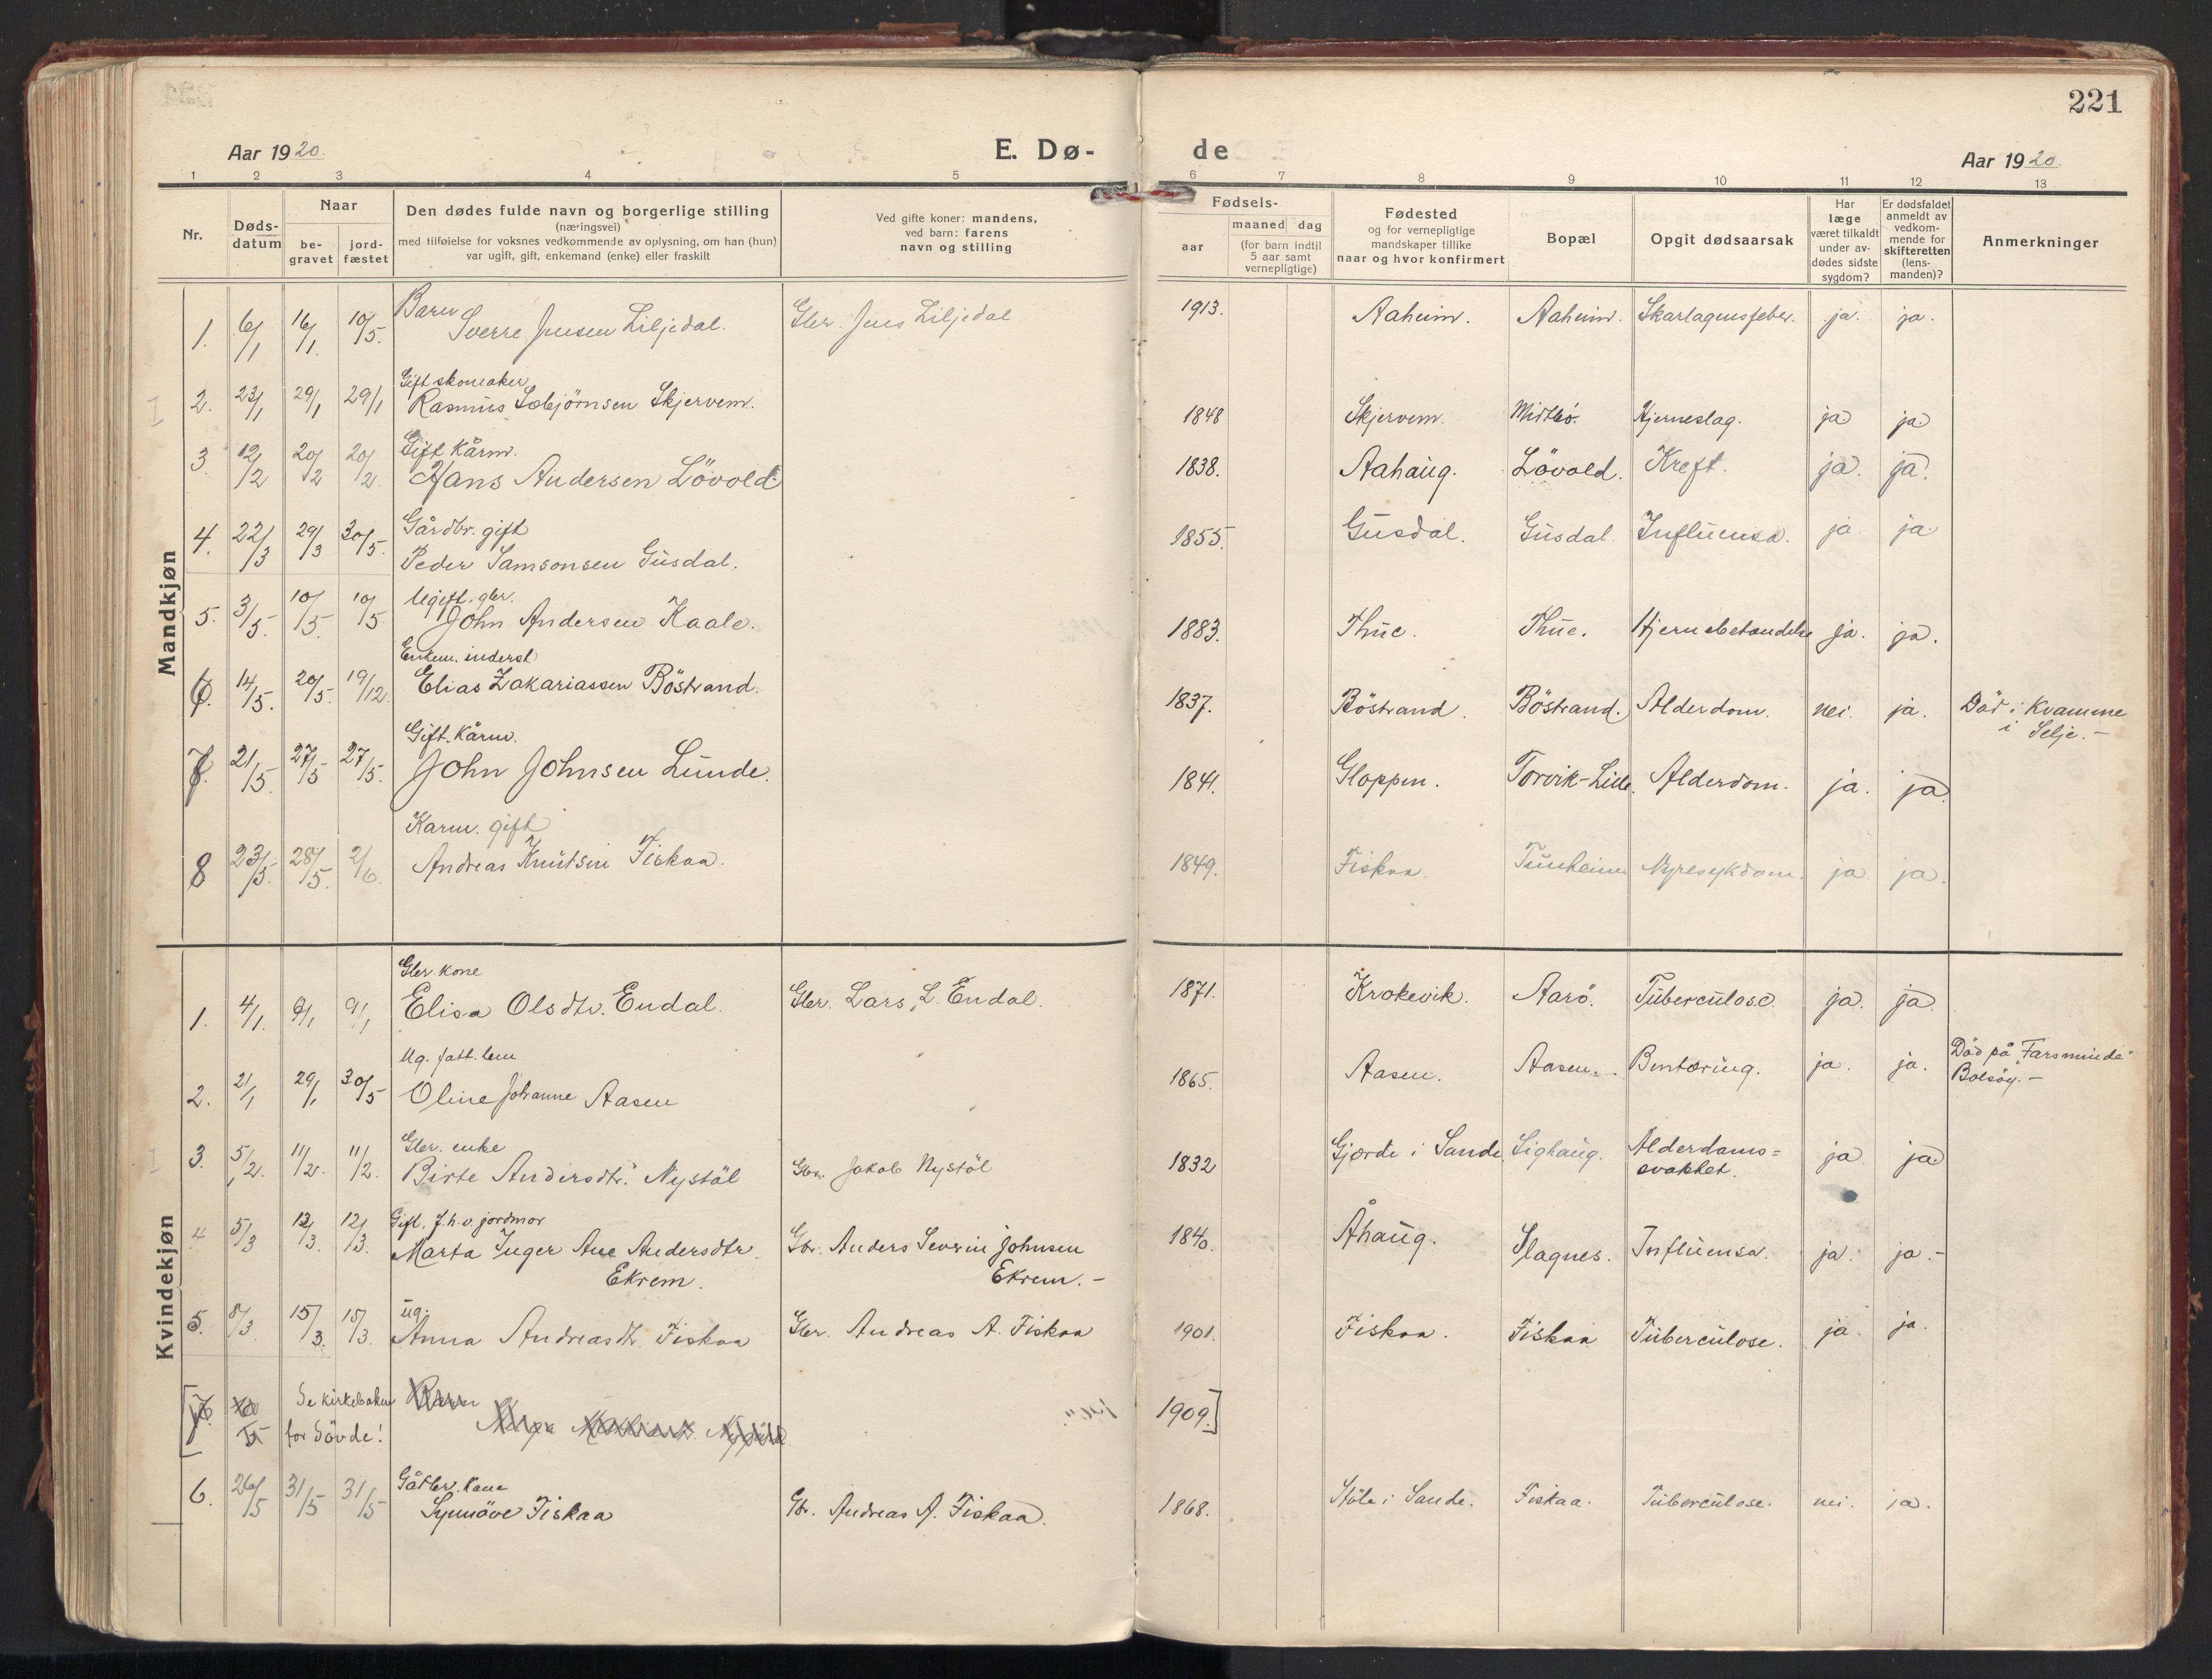 221
Aar 1920.
E. Dø-
de
Aar 1920.
1 2 3 4 5 6 7 8 9 10 11 12 13
Nr.
Døds-
datum
Naar
be-
gravet
jord-
fæstet
Den dødes fulde navn og borgerlige stilling
(næringsvei)
med tilføielse for voksnes vedkommende av oplysning, om han (hun)
var ugift, gift, enkemand (enke) eller fraskilt
Ved gifte koner: mandens,
ved barn: farens
navn og stilling
Fødsels-
aar
maaned dag
(for barn indtil
5 aar samt
vernepligtige)
Fødested
og for vernepligtige
mandskaper tillike
naar og hvor konfirmert
Bopæl
Opgit dødsaarsak
Har
læge
været tilkaldt
under av-
dødes sidste
sygdom?
Er dødsfaldet
anmeldt av
vedkom-
mende for
skifteretten
(lens-
manden)?
Anmerkninger
Mandkjøn
Barn
1. 6/1 16/1. 10/5. Sverre Jensen Liljedal. Gbr. Jens Liljedal. 1913. Aaheim. Aaheim. Skarlagensfeber. ja. ja.
Gift skomaker
2. 23/1 29/1 29/1 Rasmus Skjervem. 1848 Skjervem. Midtbö. Hjerneslag. ja ja
Gift kårm.
3. 12/2 20/2 20/2. Hans Andersen Lövold 1838. Aahaug. Lövold. Kreft. ja. ja.
Gårdbr. gift
4. 22/3 29/3 30/5. Peder Samsonsen Gusdal. 1855. Gusdal. Gusdal. Influensa. ja ja
Ugift. gbr.
5. 3/5. 10/5. 10/5 John Andersen Kaale. 1883. Thue. Thue. Hjernebetændelse ja. ja.
Enkem. inderst
6. 14/5. 20/5. 19/12 Elias Zakariassen Böstrand. 1837. Böstrand. Böstrand. Alderdom. nei. ja. Död i Kvamme
i Selje. —
Gift. Kårm.
7. 21/5. 27/5 27/5. John Johnsen Lunde. 1841. Gloppen. Torvik-Lille. Alderdom. ja. ja
Karm. gift
8 23/5. 28/5. 2/6. Andreas Knutsen Fiskaa. 1849. Fiskaa. Tunheim Nyresykdom. ja ja.
Kvindekjøn
Gbr. kone
1. 4/1. 9/1 9/1 Elisa Olsdtr. Endal. Gbr. Lars L. Endal. 1871. Krokevik. Aarö. Tuberculose. ja. ja.
Ug. fatt. lem
2. 21/1 29/1 30/5 Oline Johanne Aasen 1865. Aasen. Aasen. Bentæring. ja. ja. Död på "Farsminde"
Bolsöy. —
Gbr. enke
3. 5/2. 11/2. 11/2. Birte Andersdtr. Nystöl Gbr. Jakob Nystöl 1832 Gjerde i Sande Sighaug. Alderdoms=
svakhet. ja ja
Gift, f.h.v. jordmor
4 5/3 12/3. 12/3. Marta Inger Ane Andersdtr.
Ekrem. Gbr. Anders Severin Johnsen
Ekrem. — 1840. Åhaug. Slagnes. Influensa. ja. ja. —
ug.
5. 8/3. 15/3. 15/3. Anna Andreasdtr. Fiskaa Gbr. Andreas A. Fiskaa 1901. Fiskaa. Fiskaa Tuberculose. ja. ja.
Se kirkeboken
for Sövde! 1909.]
Gårdbr. kone
6. 26/5 31/5 31/5 Synnöve Fiskaa Gbr. Andreas A. Fiskaa. 1868. Støle i Sande. Fiskaa. Tuberculose. nei. ja.